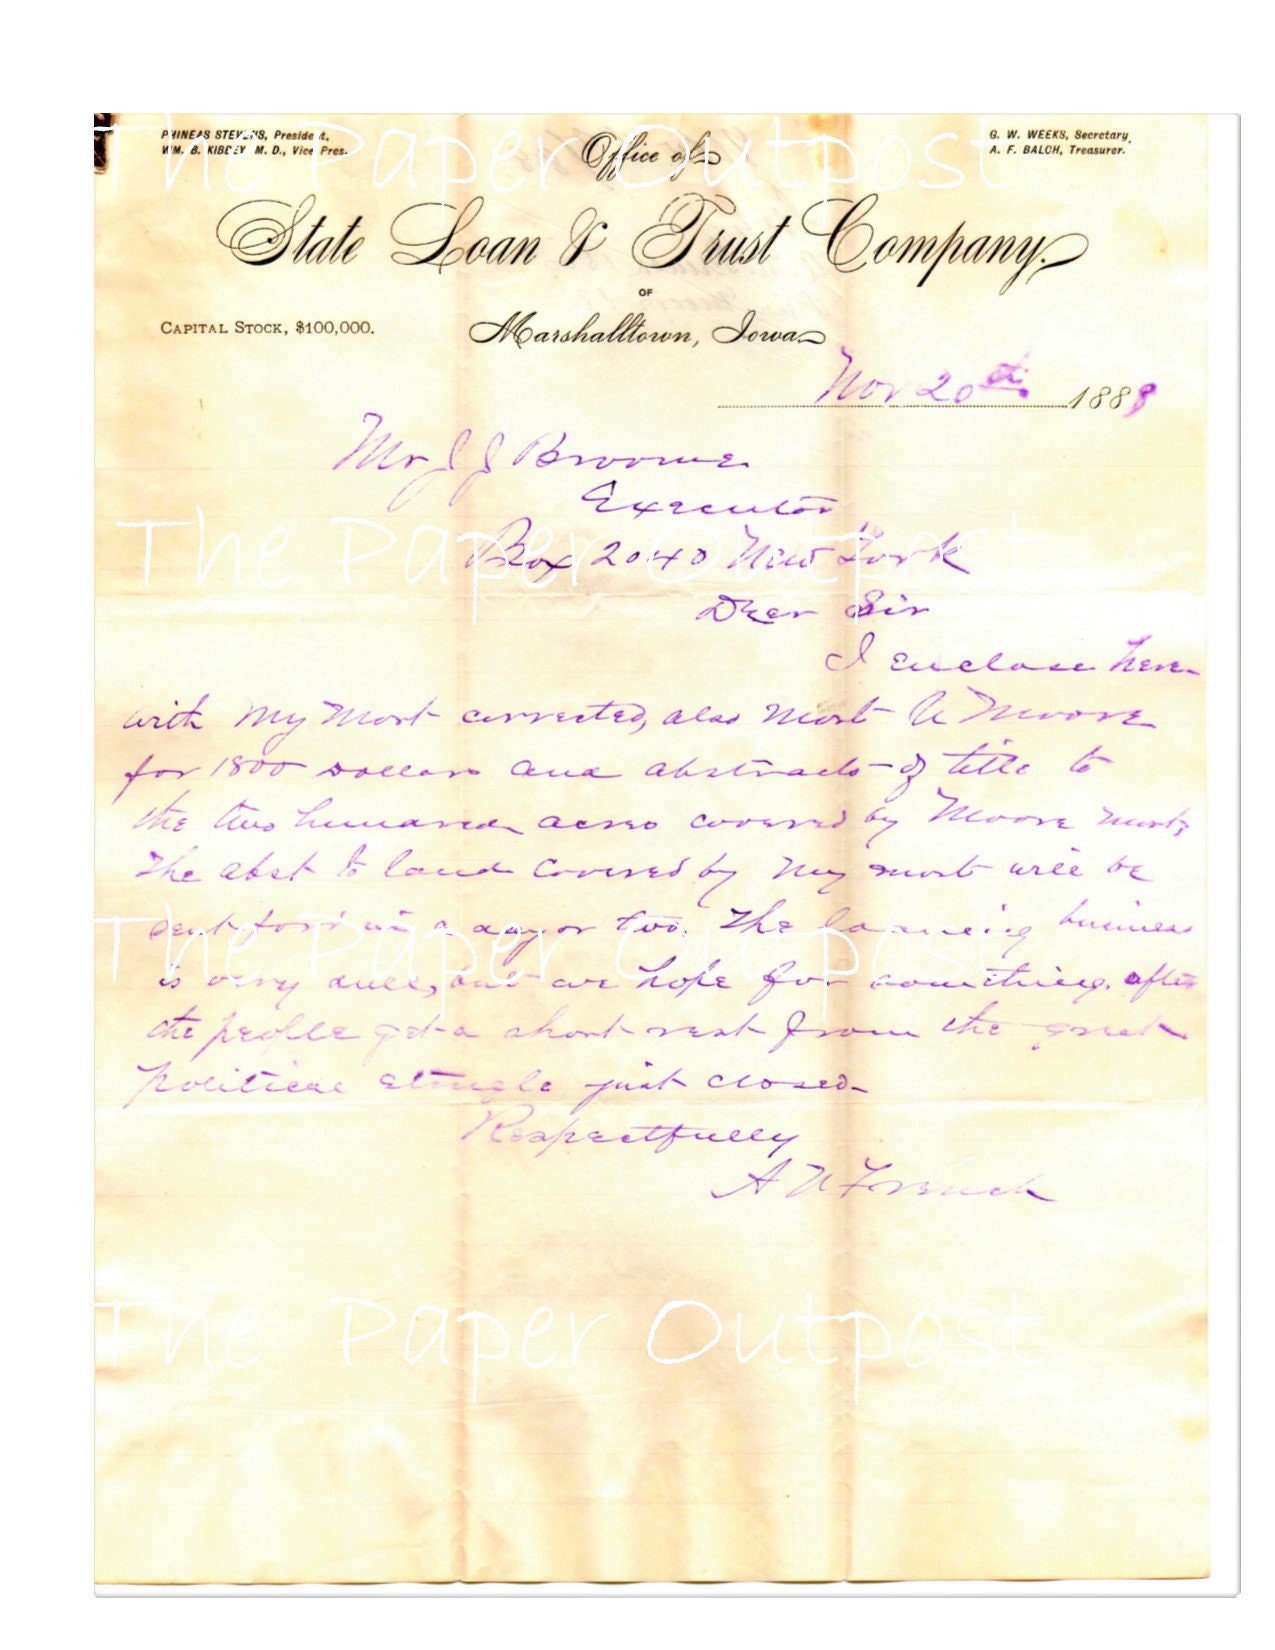 PHINEAS STEVENS, President,
WM. B. KIBBEY M. D., Vice Pres.
Office of
G. W. WEEKS, Secretary,
A. F. BALCH, Treasurer.
State Loan & Trust Company.
OF
CAPITAL STOCK, $100,000.
Marshalltown, Iowa
Nov 20th 1888
Mr J J Broome
Executor
Box 2040 New York
Dear Sir
I enclose here
with my Mort corrected, also Mort Moore
for 1800 Dollars and abstracts of title to
the two hundred acres covered by Moore Mort,
The abst to land covered by my mort will be
sent a day or two. The loaning business
is very dull, but we hope for something after
the people get a short rest from the great
political strugle just closed
Respectfully
A N French
The Paper Outpost
The Paper Outpost
The Paper Outpost
The Paper Outpost